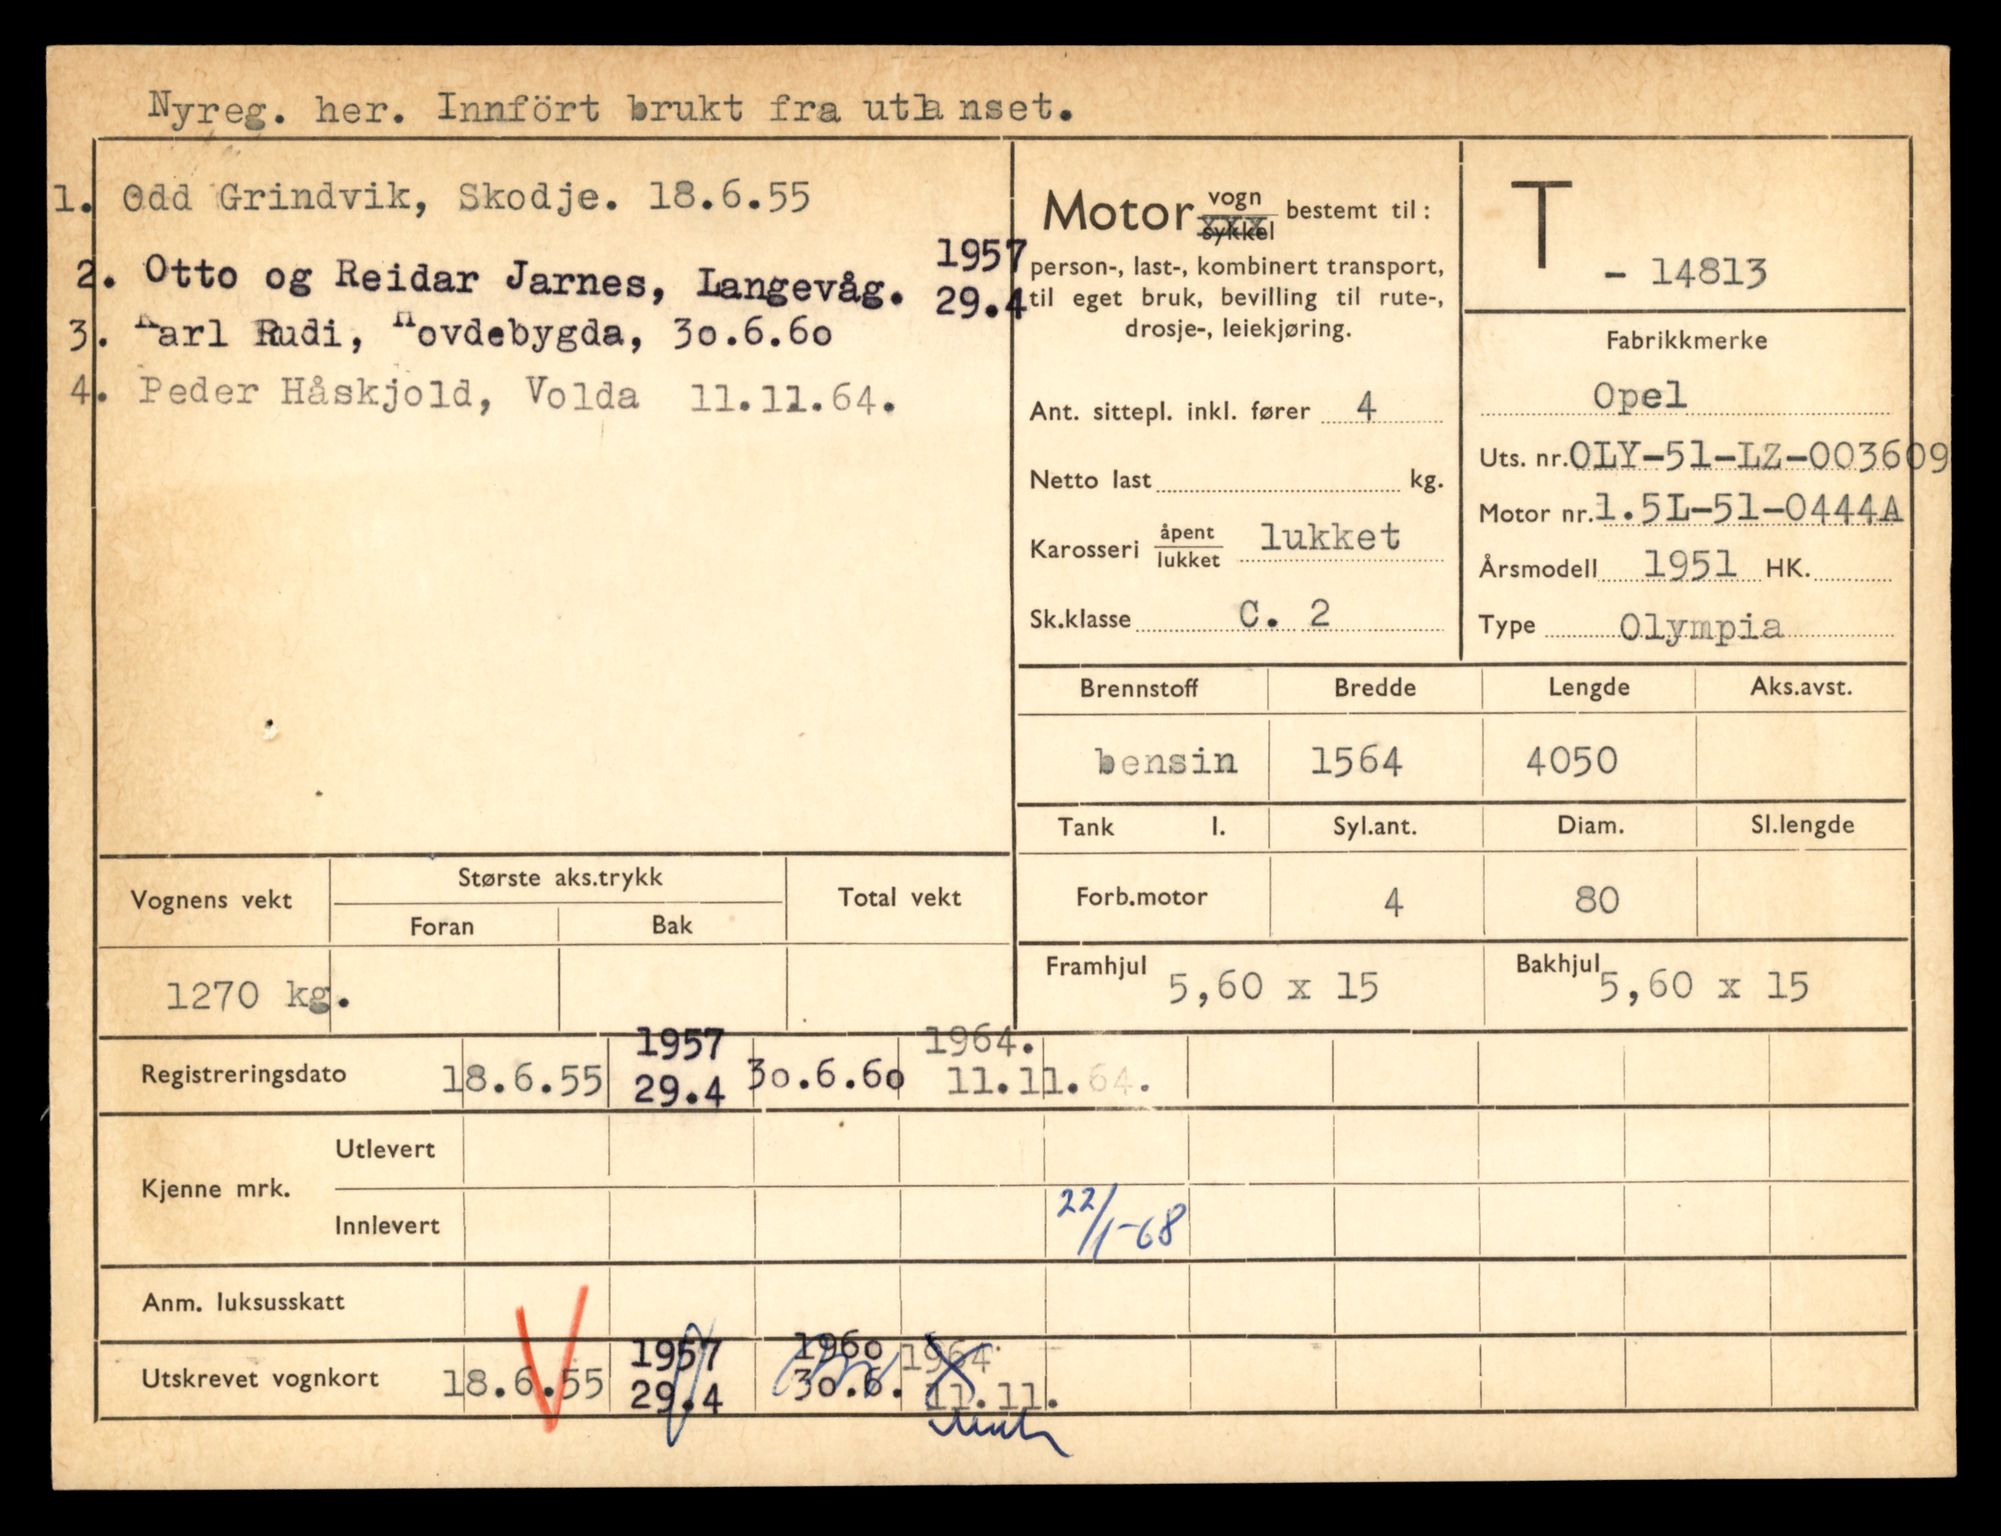 Nyreg. her. Innfört brukt fra utlanset.
1. Odd Grindvik, Skodje. 18.6.55
2. Otto og Reidar Jarnes, Langevåg. 1957
29.4
3. Karl Rudi, Hovdebygda, 3o.6.6o
4. Peder Håskjold, Volda 11.11.64.
Motor vogn sykkel bestemt til:
person-, last-, kombinert transport,
til eget bruk, bevilling til rute-,
drosje-, leiekjøring.
Ant. sittepl. inkl. fører 4
Netto last kg.
Karosseri åpent lukket lukket
Sk.klasse C. 2
T - 14813
Fabrikkmerke
Opel
Uts. nr. OLY-51-LZ-003609
Motor nr. 1.5L-51-0444A
Årsmodell 1951 HK.
Type Olympia
Brennstoff Bredde Lengde Aks.avst.
bensin 1564 4050
Tank l. Syl.ant. Diam. Sl.lengde
Forb.motor 4 80
Framhjul 5,60 x 15 Bakhjul 5,60 x 15
Vognens vekt Største aks.trykk Total vekt
Foran Bak
1270 kg.
1957 1964.
Registreringsdato 18.6.55 29.4 3o.6.6o 11.11.64.
Kjenne mrk. Utlevert
Innlevert 22/1-68
Anm. luksusskatt
1957 196o 1964
Utskrevet vognkort 18.6.55 29.4 3o.6. 11.11.